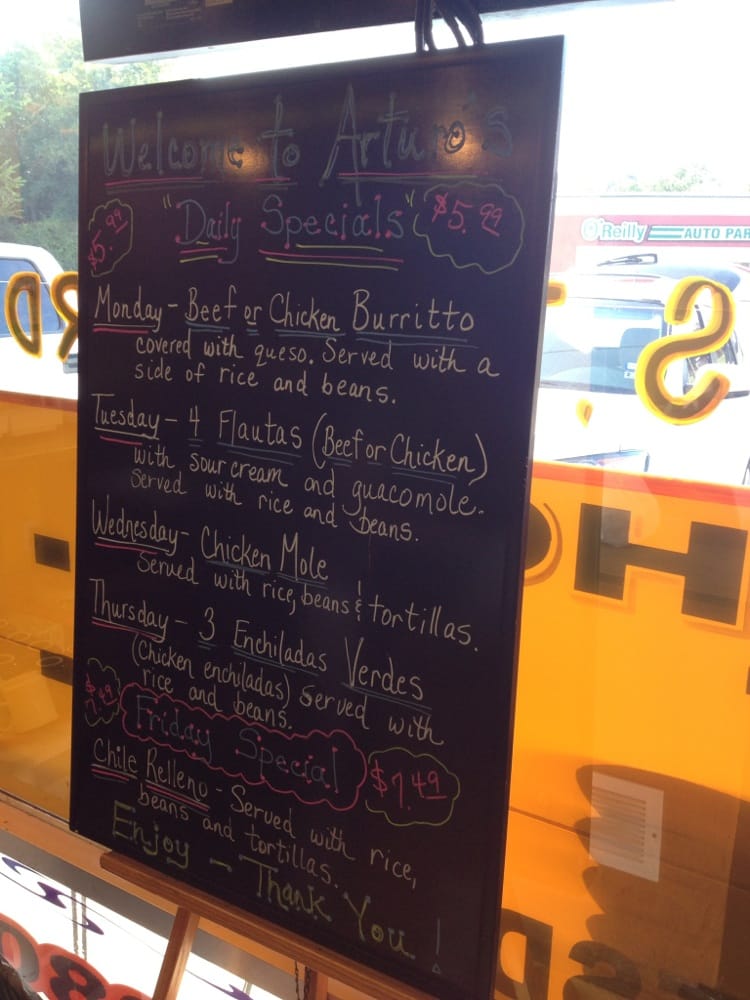 Welcome to Arturo's
"Daily Specials"
$5.99
$5.99
Monday - Beef or Chicken Burritto
covered with queso. Served with a
side of rice and beans.
Tuesday - 4 Flautas (Beef or Chicken)
with sour cream and guacomole.
Served with rice and beans.
Wednesday - Chicken Mole
Served with rice, beans & tortillas.
Thursday - 3 Enchiladas Verdes
(Chicken enchiladas) served with
rice and beans.
$7.49
Friday Special
$7.49
Chile Relleno - Served with rice,
beans and tortillas.
Enjoy - Thank You!
O'Reilly AUTO PAR